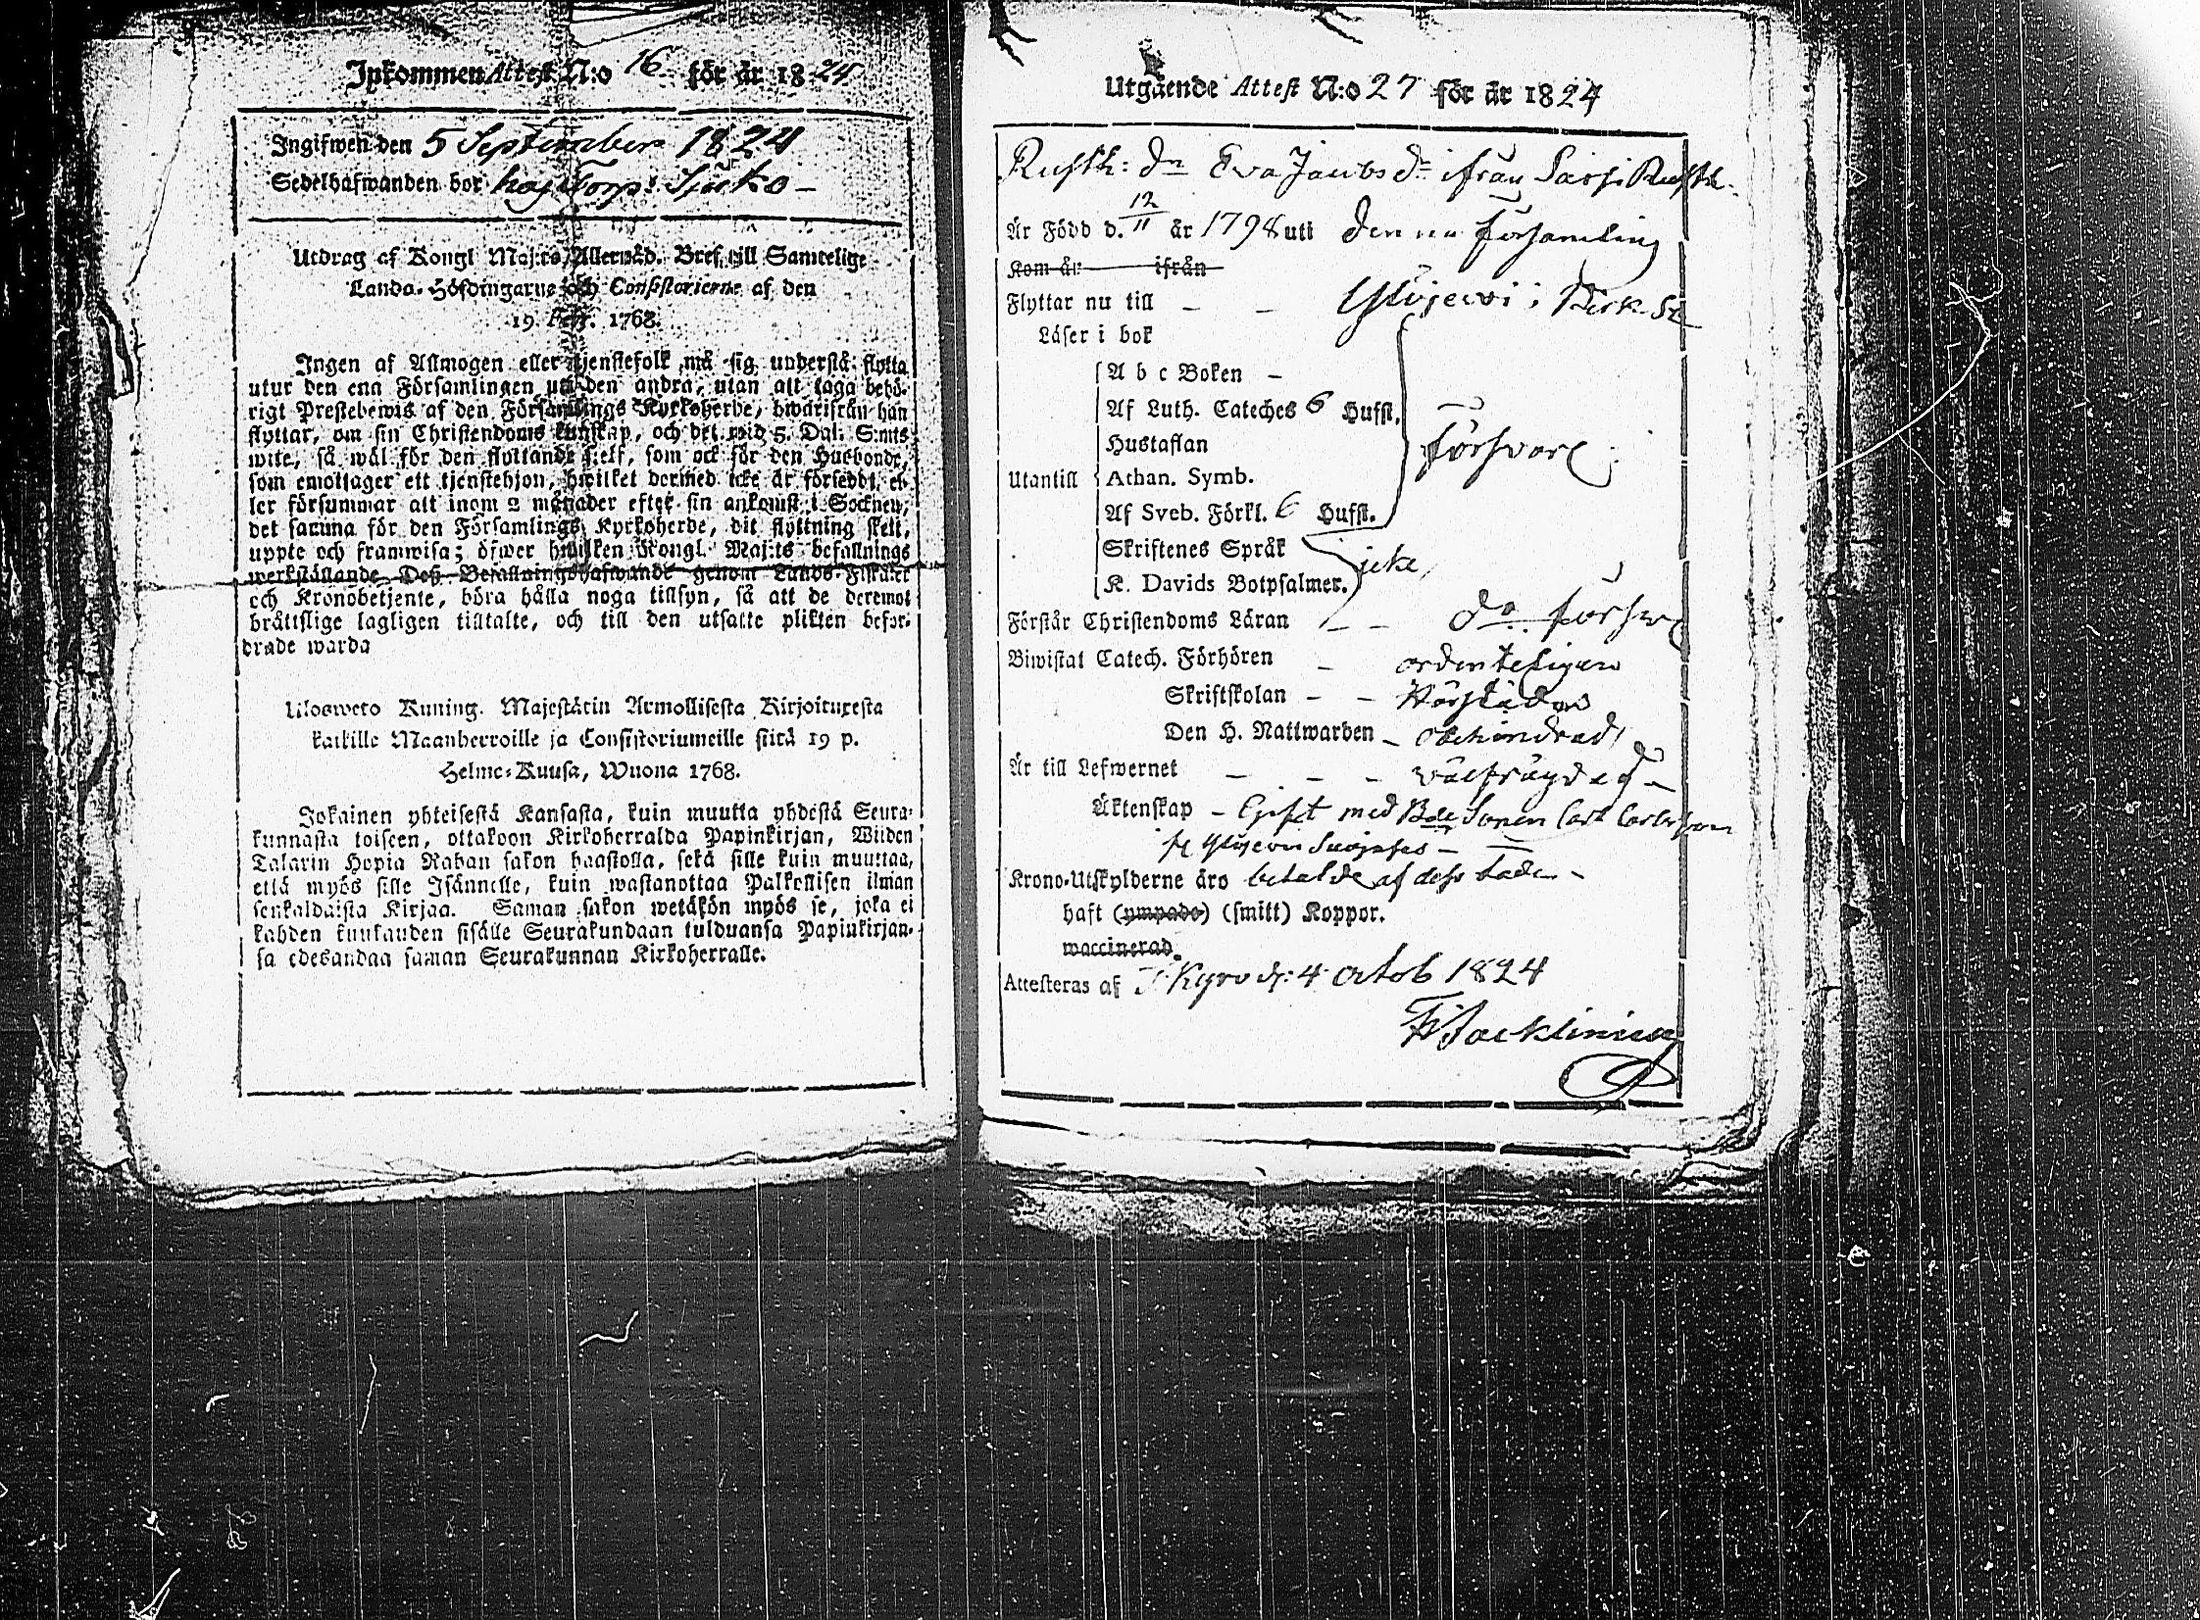 Inkommen Attest N:o 16 för år 1824
Ingifwen den 5 September 1824
Sedelhafwanden bor
Utdrag af Kongl Maj:ts Allernåd. Bref till Samtelige
Lands-Höfdingarne och Consistorierne af den
19. Febr. 1768.
Ingen af Allmogen eller tjenstefolk må sig understå flytta
utur den ena Församlingen uti den andra, utan att taga behö-
rigt Prestebewis af den Församlings Kyrkoherde, hwarifrån han
flyttar, om sin Christendoms kunskap, och det wid 5. Dal. S:mts
wite, så wäl för den flyttande sielf, som ock för den Husbonde,
som emottager ett tjenstehjon, hwilket dermed icke är försedd, el-
ler försummar att inom 2 månader efter sin ankomst i Socknen,
det samma för den Församlings Kyrkoherde, dit flyttning skett,
uppte och framwisa; öfwer hwilken Kongl. Maj:ts befallnings
werkställande Deß Befallningshafwande genom Lands-Fiskaler
och Kronobetjente, böra hålla noga tillsyn, så att de deremot
bråttslige lagligen tilltalte, och till den utsatte plikten befor-
drade warda
Ulosweto Kuning. Majestätin Armollisesta Kirjoituxesta
kaikille Maanherroille ja Consistoriumeille siitä 19 p.
Helme-Kuusa, Wuona 1768.
Jokainen yhteisestä Kansasta, kuin muutta yhdestä Seura-
kunnasta toiseen, ottakoon Kirkoherralda Papinkirjan, Wiiden
Talarin Hopia Rahan sakon haastolla, sekä sille kuin muuttaa,
että myös sille Isännelle, kuin wastanottaa Palkollisen ilman
senkaldaista Kirjaa. Saman sakon wetäkön myös se, joka ei
kahden kuukauden sisälle Seurakundaan tulduansa Papinkirjan-
sa edesandaa saman Seurakunnan Kirkoherralle.
Utgående Attest N:o 27 för år 1824
Rusth: dr Eva Jacobs dr ifrån Rusth.
Är Född d. 12/11 år 1798 uti denna församling
Kom år ifrån
Flyttar nu till
Läser i bok
A b c Boken
Af Luth. Cateches 6 Hufst.
Hustaflan
försvarl:
Utantill Athan. Symb.
Af Sveb. Förkl. 6 Hufst.
Skriftenes Språk
icke
K. Davids Botpsalmer.
Förstår Christendoms Läran do försv
Biwistat Catech. Förhören ordenteligen
Skriftskolan
Den H. Nattwarden obehindrad
Är till Lefwernet wälfrägdad
Äktenskap Gift med Bde Sonen Carl Carlsson
Krono-Utskylderne äro betalde af dess
haft (ympade) (smitt) Koppor.
waccinerad.
Attesteras af Kyro d: 4 octob 1824